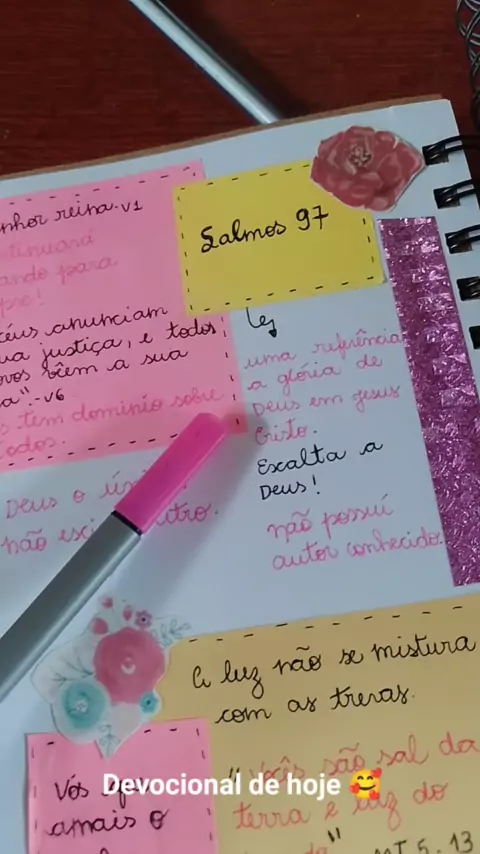 nhor reina-v1
tinuará
ando para
pre!
céus anunciam
ua justiça, e todos
ovos vêem a sua
a".-v6
s tem dominio sobre
todos.
Salmos 97
uma referência
a glória de
Deus em Jesus
Cristo.
Exalta a
Deus!
não possuí
autor conhecido.
Deus o
não
utro.
A luz não se mistura
com as trevas.
"Vocês são sal da
terra e luz do
" MT 5.13
Vós que
amais o
Devocional de hoje 🥰